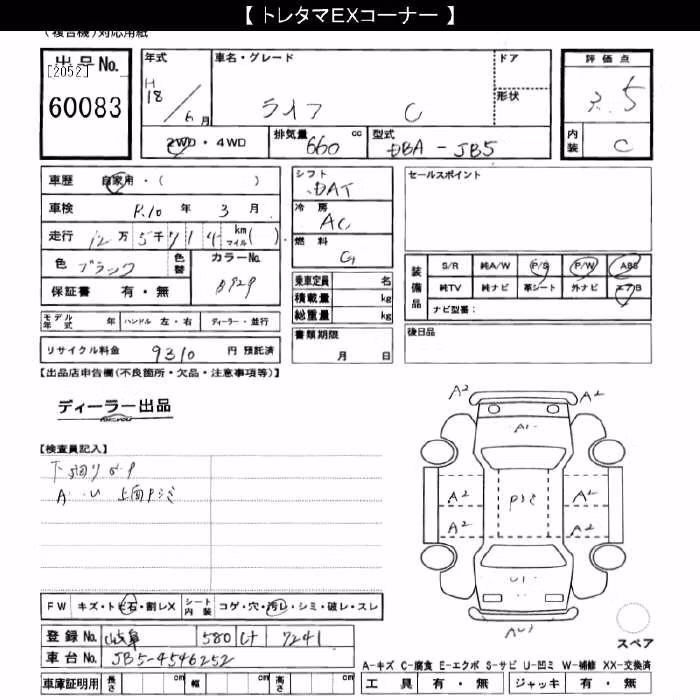 【 トレタマEXコーナー 】
(複合機)対応用紙
出品No. [2052] 60083
年式 H 18 / 6 月
車名・グレード ライフ C
ドア
形状
2WD・4WD
排気量 660 cc
型式 DBA-JB5
評価点 3.5
内装 C
車歴 自家用・( )
車検 R.10 年 3 月
走行 12 万 5 千 7 1 4 km マイル( )
色 ブラック 色替 カラーNo. B929
保証書 有・無
シフト DAT
冷房 AC
燃料 G
乗車定員 名
積載量 kg
総重量 kg
セールスポイント
装備品 S/R 純A/W P/S P/W ABS
純TV 純ナビ 革シート 外ナビ エアB
ナビ型番:
モデル年式 年 ハンドル 左・右 ディーラー・並行
リサイクル料金 9310 円 預託済
書類期限 月 日
後日品
【出品店申告欄(不良箇所・欠品・注意事項等)】
ディーラー出品
【検査員記入】
下回りサP
A・U 上面Pシミ
A2 A2
A1
A2 Pシミ A2
A2 A2
U1
AU1
スペア
FW キズ・トビ石・割レX シート内装 コゲ・穴・汚レ・シミ・破レ・スレ
登録No. 岐阜 580 け 7241
車台No. JB5-4546252
車庫証明用 長さ cm 幅 cm 高さ cm
A-キズ C-腐食 E-エクボ S-サビ U-凹ミ W-補修 XX-交換済
工具 有・無 ジャッキ 有・無